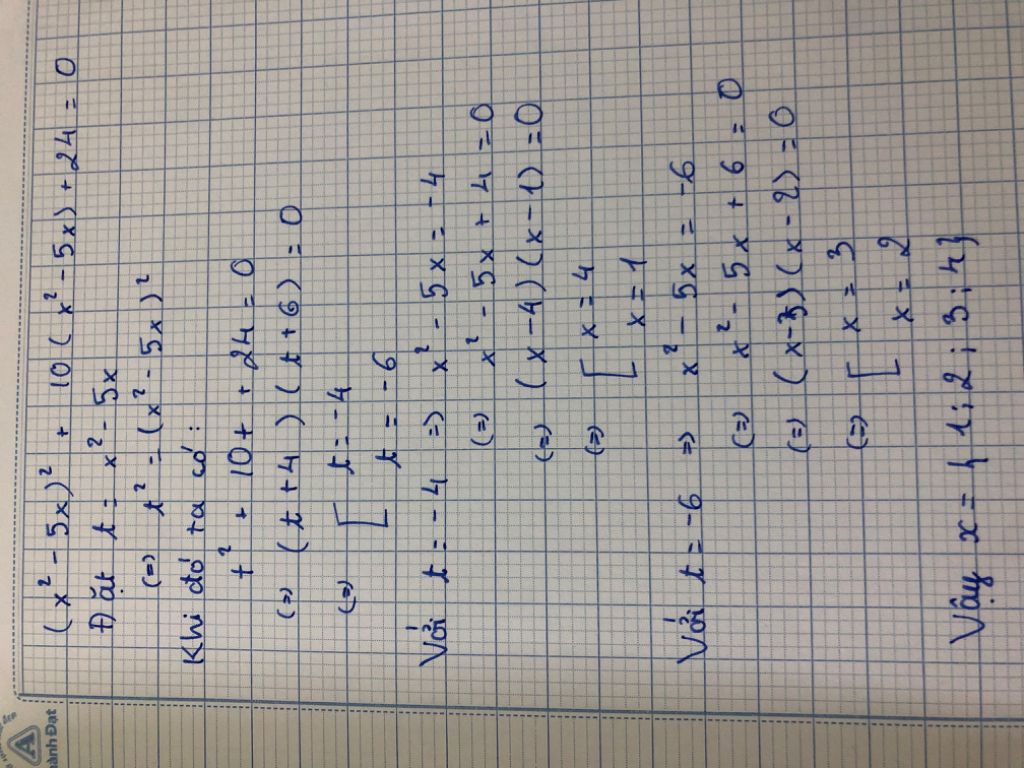 (x² - 5x)² + 10(x² - 5x) + 24 = 0
Đặt t = x² - 5x
(=) t² - (x² - 5x)²
Khi đó ta có:
t² + 10t + 24 = 0
(=) (t + 4)(t + 6) = 0
(=) [ t = -4
t = -6
Với t = -4 => x² - 5x = -4
(=) x² - 5x + 4 = 0
(=) (x - 4)(x - 1) = 0
(=) [ x = 4
x = 1
Với t = -6 => x² - 5x = -6
(=) x² - 5x + 6 = 0
(=) (x - 3)(x - 2) = 0
(=) [ x = 3
x = 2
Vậy x = { 1; 2; 3; 4}
A
hành Đạt